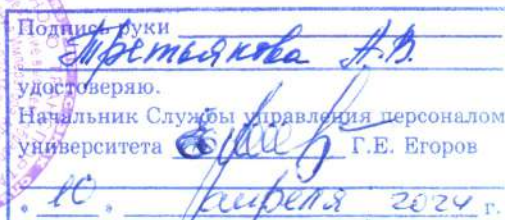 Подпись руки
Третьякова А.В.
удостоверяю.
Начальник Службы управления персоналом
университета Г.Е. Егоров
« 10 » апреля 2024 г.